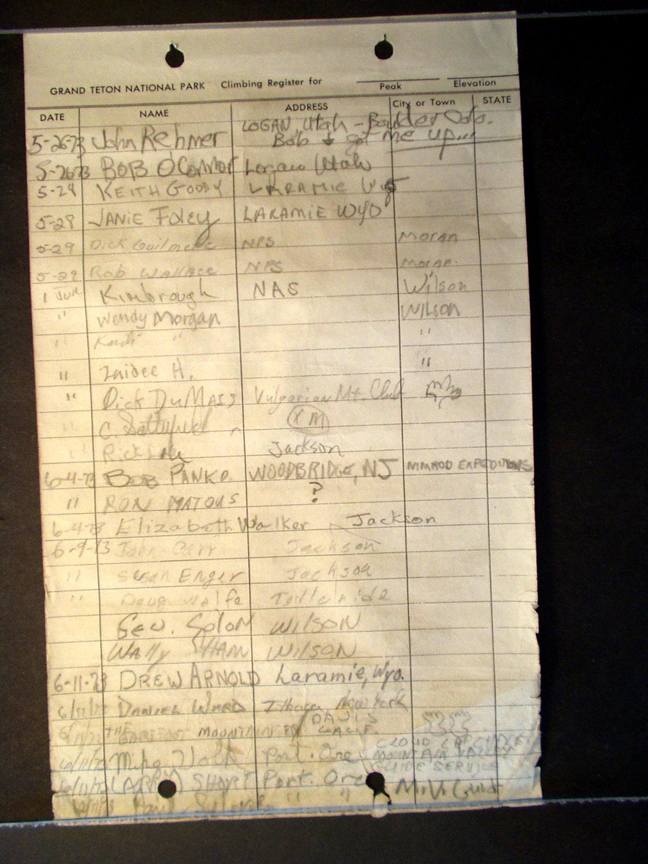 GRAND TETON NATIONAL PARK Climbing Register for
Peak Elevation
DATE NAME ADDRESS City or Town STATE
LOGAN Utah - Boulder Colo.
5-26-73 John Rehmer Bob & got me up...
5-26-73 BOB O'Connor Logan Utah
5-29 KEITH GOODY LARAMIE Wyo
5-29 JANIE Foley LARAMIE WYO
5-29 Dick NPS Moran
5-29 Bob Wallace NPS Moran
1 JUN Kimbrough NAS Wilson
" Wendy Morgan WILSON
" " "
" Zaidee H. "
" Dick DuMais Vulgarian Mt. Club
" C.
" Rick Jackson
6-4-73 BOB PANKO WOODBRIDGE, NJ NIMROD EXPEDITIONS
" RON MATOUS ?
6-4-73 Elizabeth Walker Jackson
6-9-73 John Carr Jackson
" Susan Enger Jackson
" Doug Wolfe Telluride
Geo. Colon WILSON
Wally WILSON
6-11-73 DREW ARNOLD Laramie, Wyo.
6/11/73 DANIEL WARD Ithaca, New York
THE GREATEST MOUNTAINEER DAVIS CALIF
Mike Port. Ore
GUIDE SERVICE
LARRY SHORT Port. Ore
Paul " "